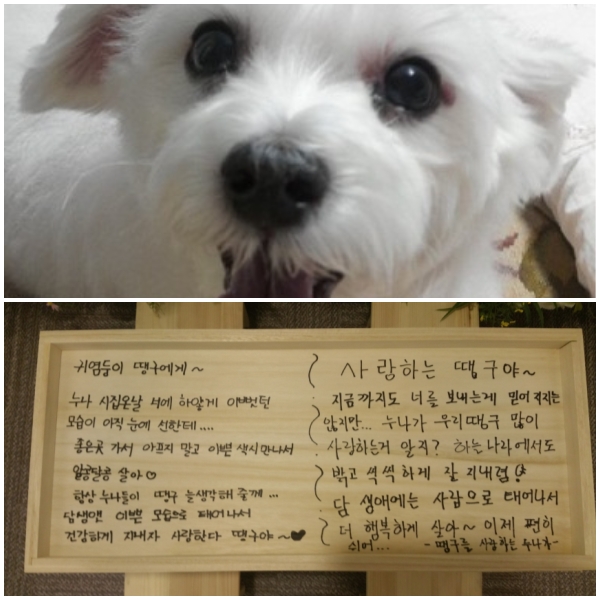 귀염둥이 땡구에게~
누나 시집온날 너에 하얗게 이뻤던
모습이 아직 눈에 선한데....
좋은곳 가서 아프지 말고 이쁜 색시만나서
알콩달콩 살아♡
항상 누나들이 땡구 늘생각해 줄께...
담생앤 이쁜 모습으로 태어나서
건강하게 지내자 사랑한다 땡구야~♥
사랑하는 땡구야~
지금까지도 너를 보내는게 믿어 지지는
않지만... 누나가 우리땡구 많이
사랑하는거 알지? 하늘나라에서도
밝고 씩씩하게 잘 지내렴
담 생애에는 사람으로 태어나서
더 행복하게 살아~ 이제 편히
쉬어...
-땡구를 사랑하는 누나가-